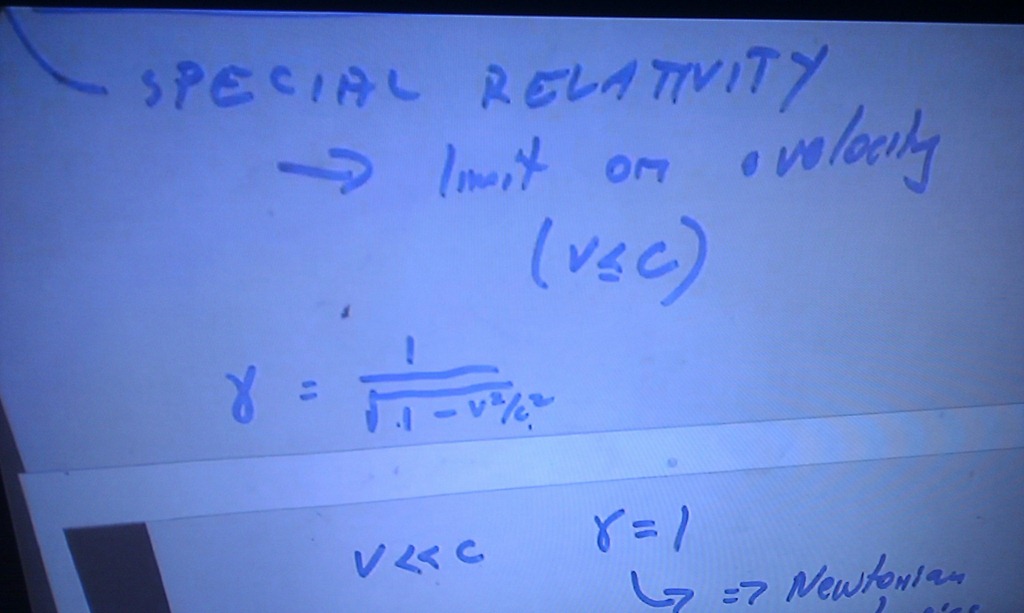 SPECIAL RELATIVITY
→ limit on velocity
(v ≤ c)
γ = 1 / √(1 - v²/c²)
v << c γ = 1
↳ => Newtonian